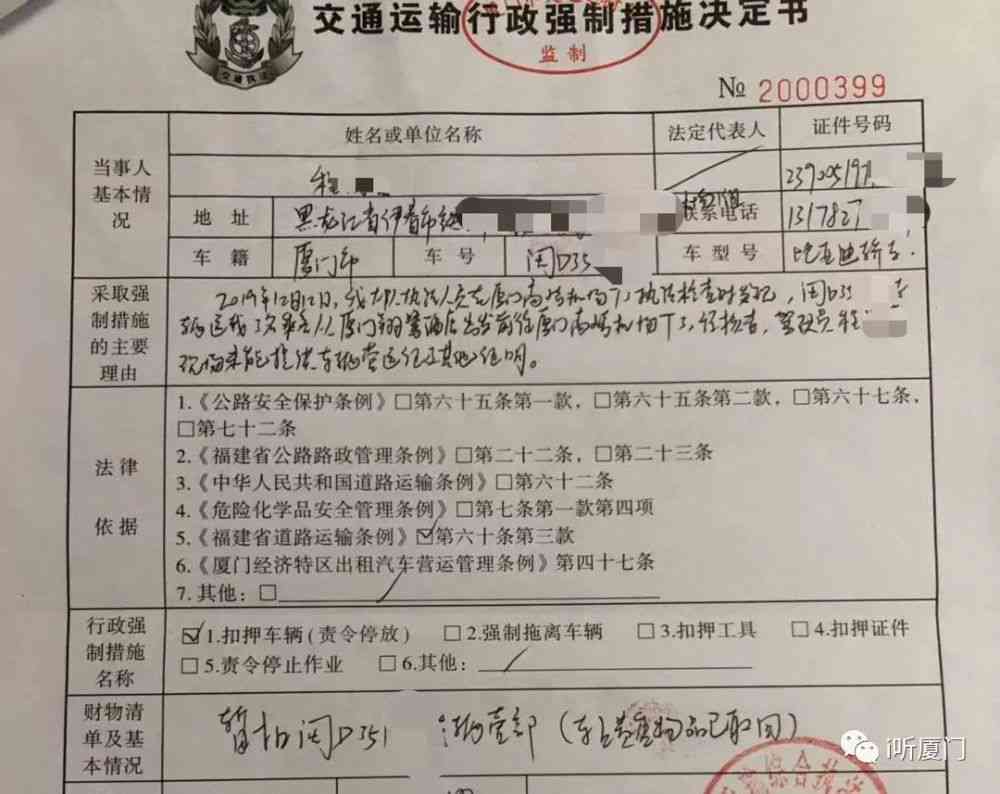 交通运输行政强制措施决定书
监制
交通执法
№ 2000399
当事人基本情况
姓名或单位名称
法定代表人
证件号码
程
23900519
地 址
黑龙江省伊春市
联系电话
1317827
车 籍
厦门市
车 号
闽D35
车 型 号
比亚迪轿车
采取强制措施的主要理由
2019年12月12日,我大队执法人员在厦门高崎机场T3执法检查时发现,闽D35
辆运载3名乘客从厦门翔鹭酒店出发前往厦门高崎机场T3,经检查,驾驶员程
现场未能提供车辆营运证或其他证明。
法律依据
1.《公路安全保护条例》□第六十五条第一款,□第六十五条第二款,□第六十七条,
□第七十二条
2.《福建省公路路政管理条例》□第二十二条,□第二十三条
3.《中华人民共和国道路运输条例》□第六十二条
4.《危险化学品安全管理条例》□第七条第一款第四项
5.《福建省道路运输条例》☑第六十条第三款
6.《厦门经济特区出租汽车营运管理条例》第四十七条
7.其他:□
行政强制措施名称
☑1.扣押车辆(责令停放) □2.强制拖离车辆 □3.扣押工具 □4.扣押证件
□5.责令停止作业 □6.其他:
财物清单及基本情况
暂扣闽D351 辆壹部(车上贵重物品已取回)
综合执
i听厦门